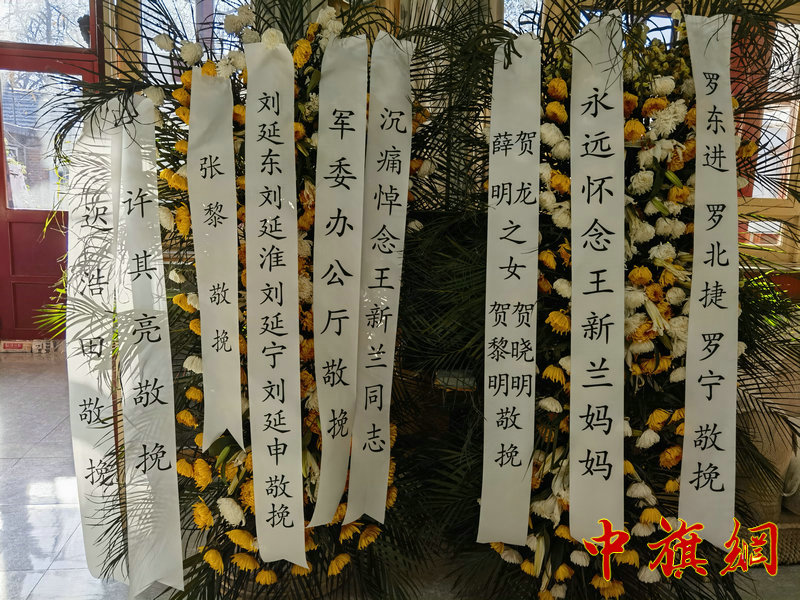 迟浩田 敬挽
许其亮敬挽
张黎 敬挽
刘延东刘延淮刘延宁刘延申敬挽
军委办公厅敬挽
沉痛悼念王新兰同志
贺龙
薛明之女 贺晓明
贺黎明敬挽
永远怀念王新兰妈妈
罗东进 罗北捷 罗宁 敬挽
中旗網